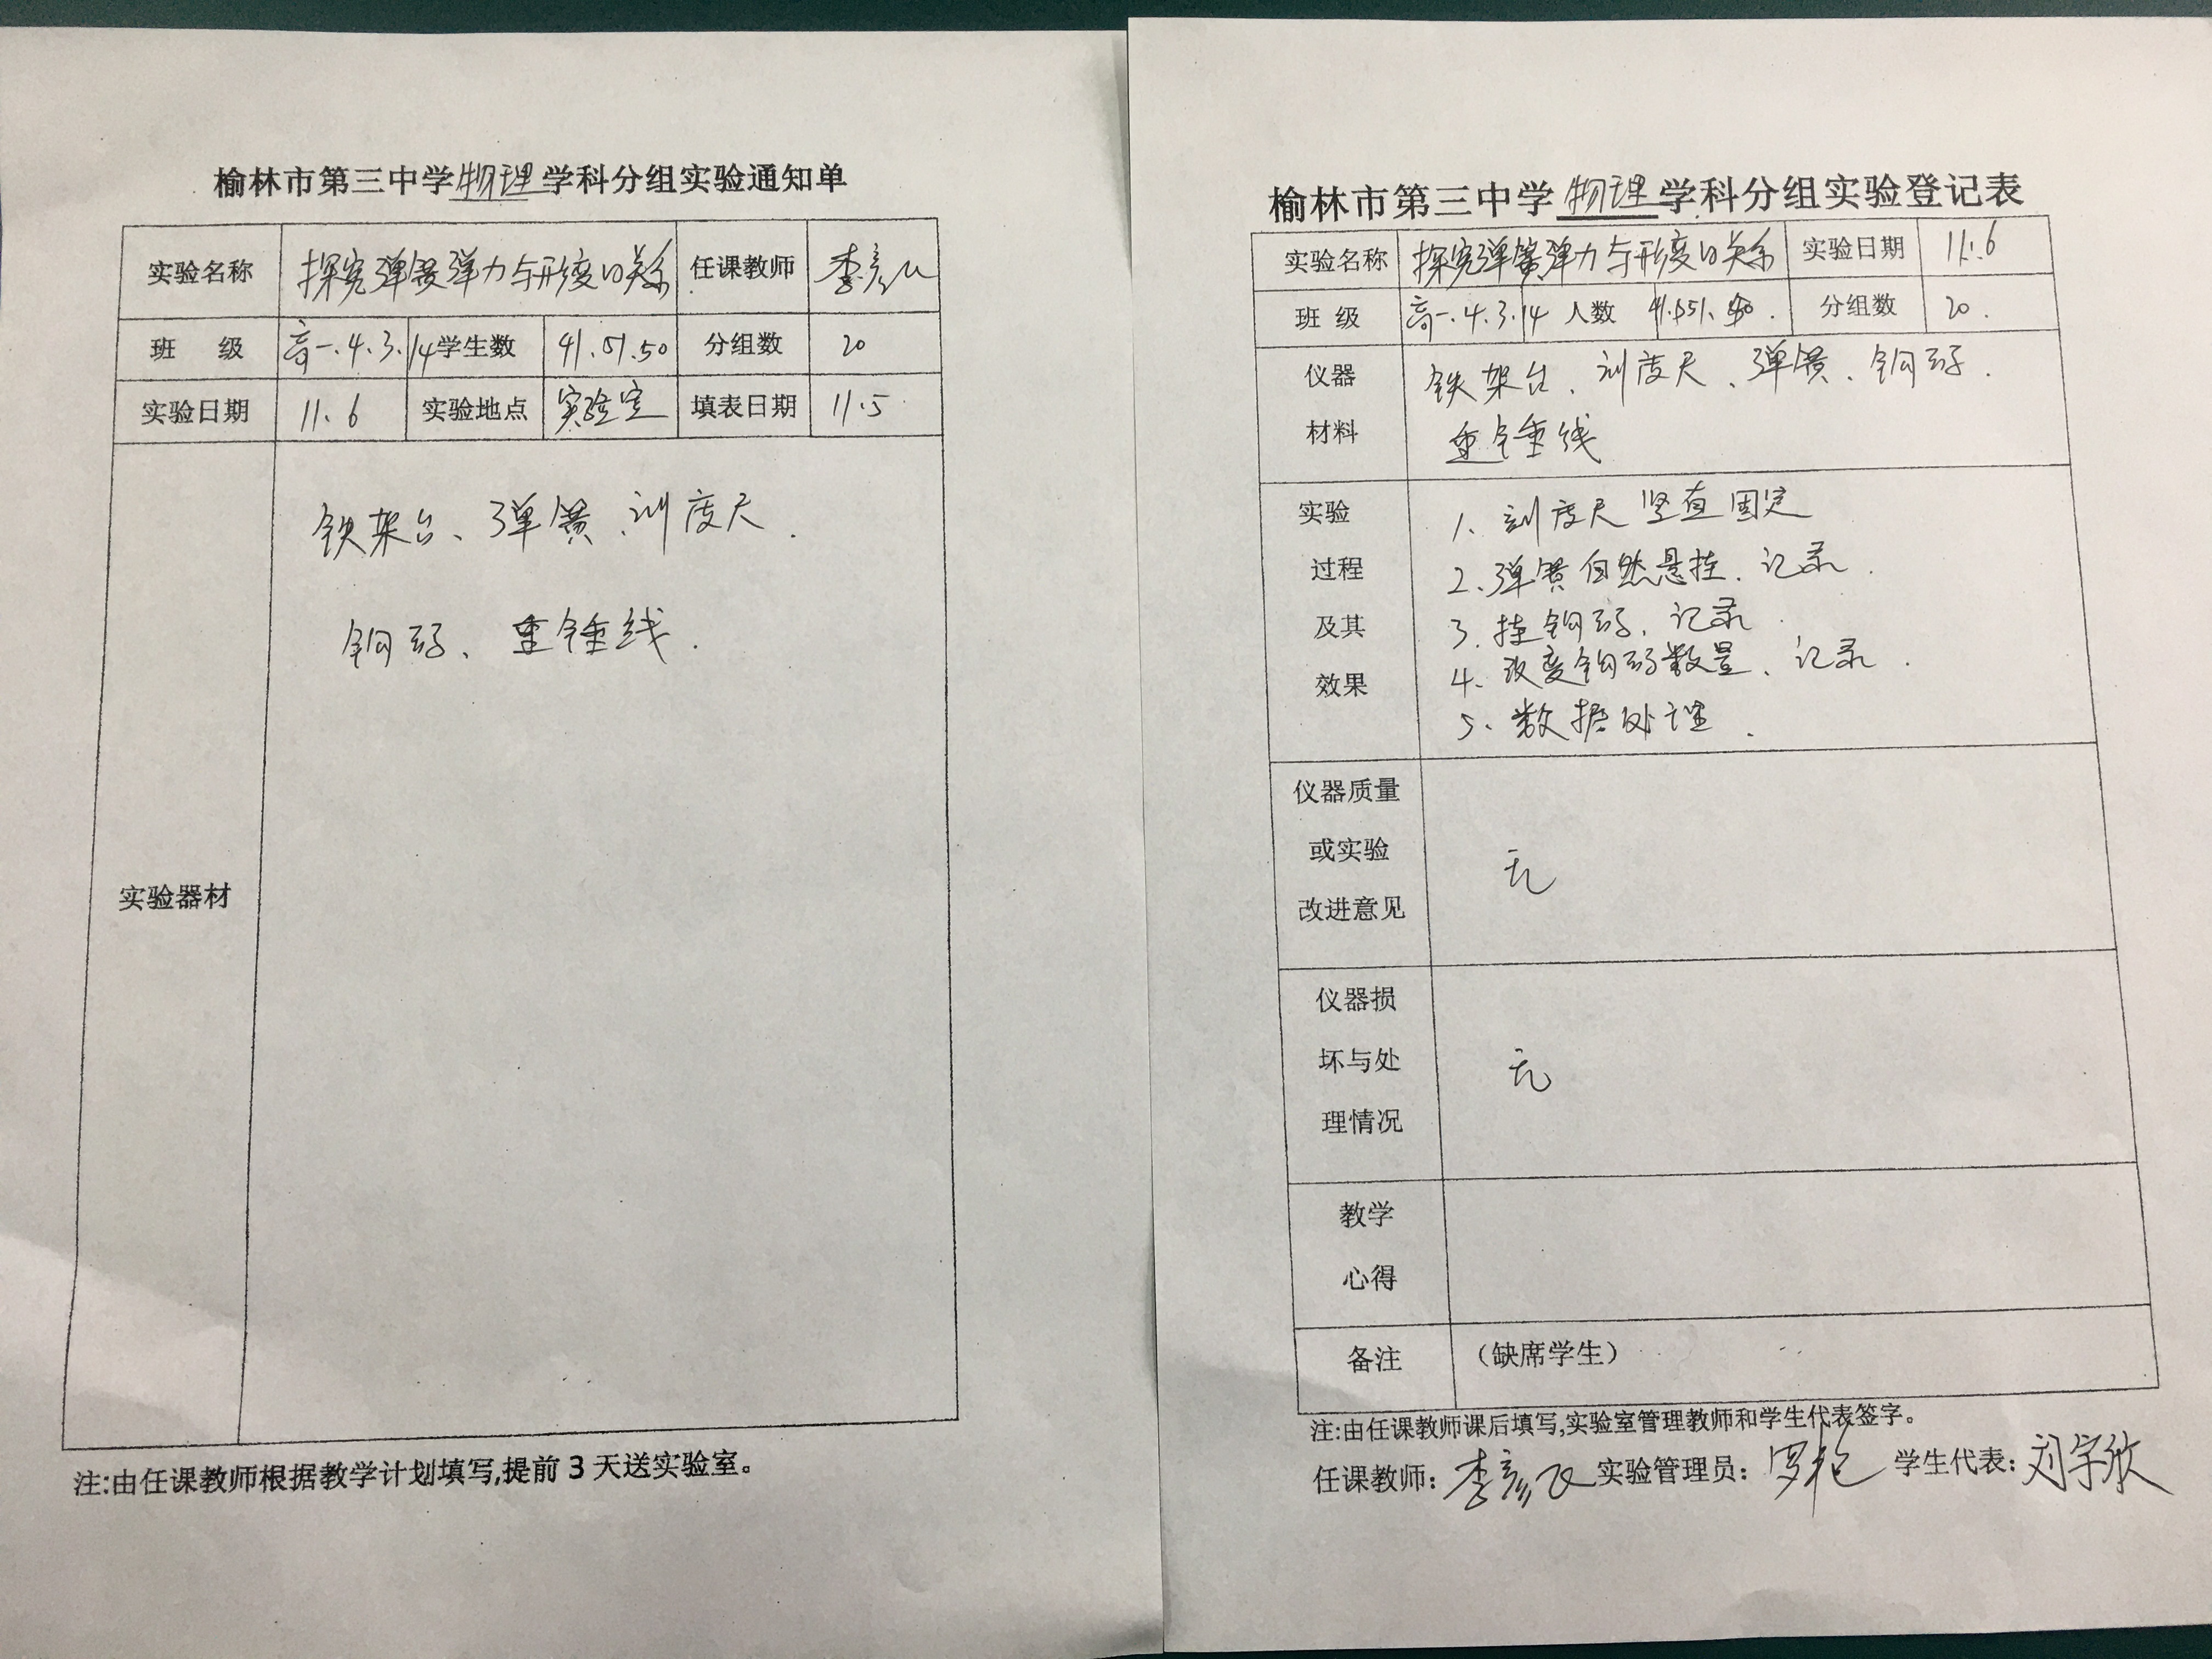 榆林市第三中学物理学科分组实验通知单
实验名称 探究弹簧弹力与形变的关系 任课教师 李彦
班 级 高一.4.3.14 学生数 41.51.50 分组数 20
实验日期 11.6 实验地点 实验室 填表日期 11.5
实验器材
铁架台、弹簧、刻度尺.
钩码、重锤线.
注:由任课教师根据教学计划填写,提前3天送实验室。
榆林市第三中学物理学科分组实验登记表
实验名称 探究弹簧弹力与形变的关系 实验日期 11.6
班 级 高一.4.3.14 人数 41.51.50. 分组数 20.
仪器
材料
铁架台、刻度尺、弹簧、钩码.
重锤线
实验
过程
及其
效果
1、刻度尺竖直固定
2、弹簧自然悬挂、记录.
3、挂钩码、记录.
4、改变钩码数量、记录.
5、数据处理.
仪器质量
或实验
改进意见
无
仪器损
坏与处
理情况
无
教学
心得
备注 (缺席学生)
注:由任课教师课后填写,实验室管理教师和学生代表签字。
任课教师: 李彦 实验管理员: 罗 学生代表: 刘宇欣